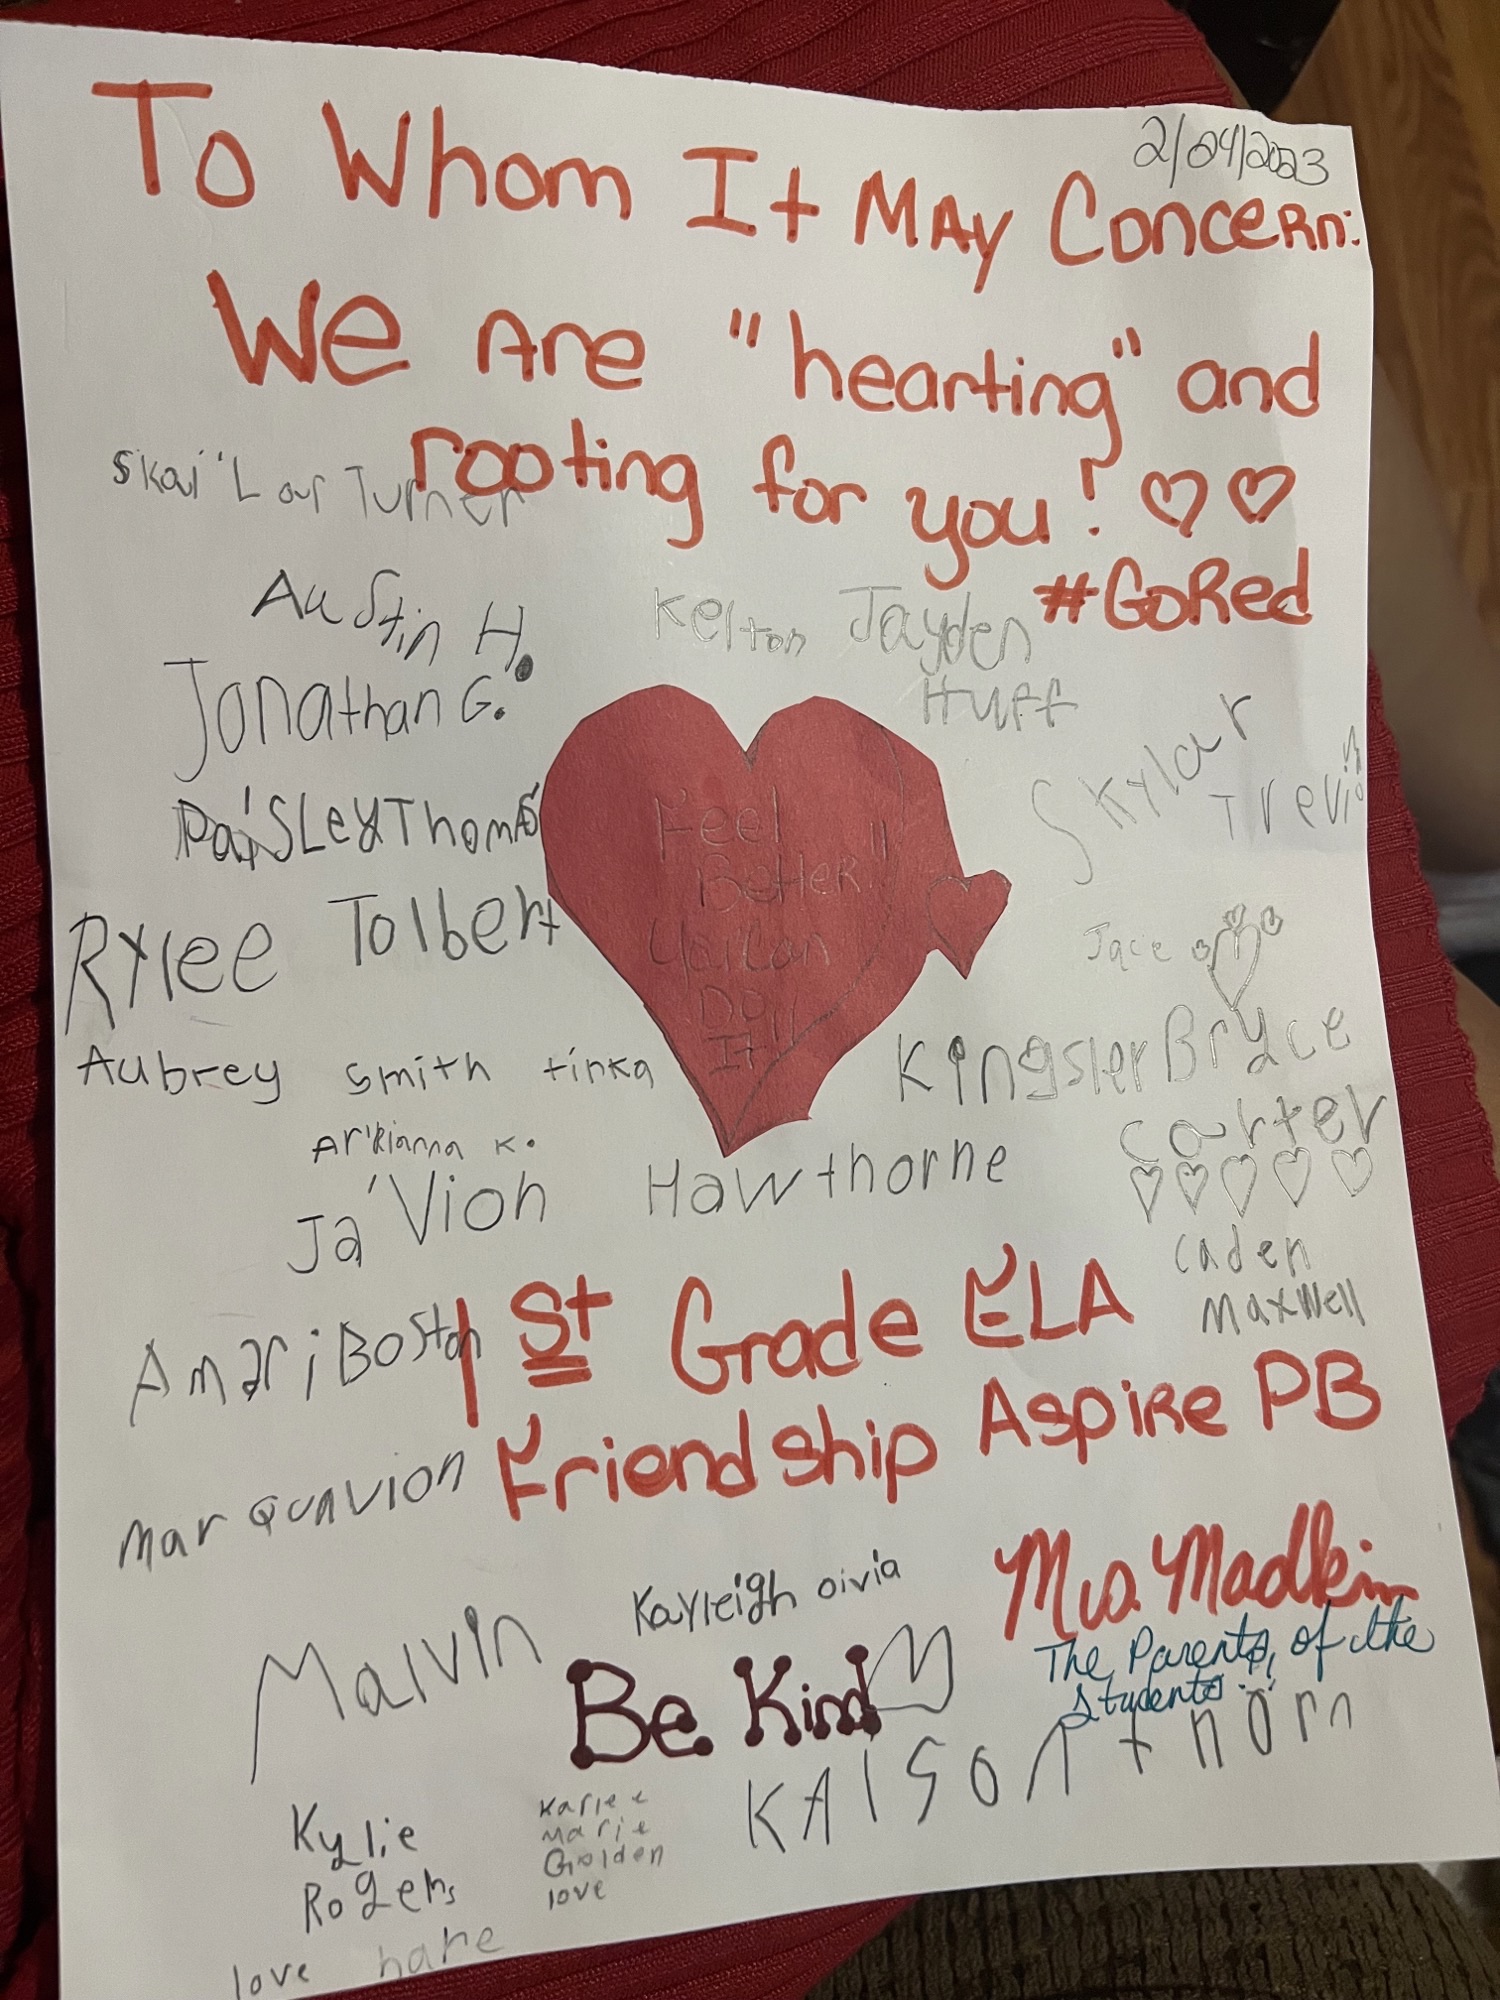 2/04/2023
To Whom It May Concern:
We Are "hearting" and
rooting for you! ♡ ♡
#GoRed
Skai'Lar Turner
Austin H.
Kelton
Jayden
Huff
Jonathan G.
Skylar
Trevin
Paisley Thomas
Feel
Better!!
You Can
Do
It!!
Rylee Tolbert
Jace
Aubrey smith tinka
Kingsler Bryce
Carter
Ar'Rianna K.
Ja'Vion Hawthorne
Caden
Maxwell
Amari Boston
1st Grade ELA
Friendship Aspire PB
Mar Quavion
Mrs. Madkin
The Parents, of the
Students
Kayleigh oivia
Malvin
Be Kind
KAison
Kylie
Rogers
Karlee
Marie
Golden
love
love